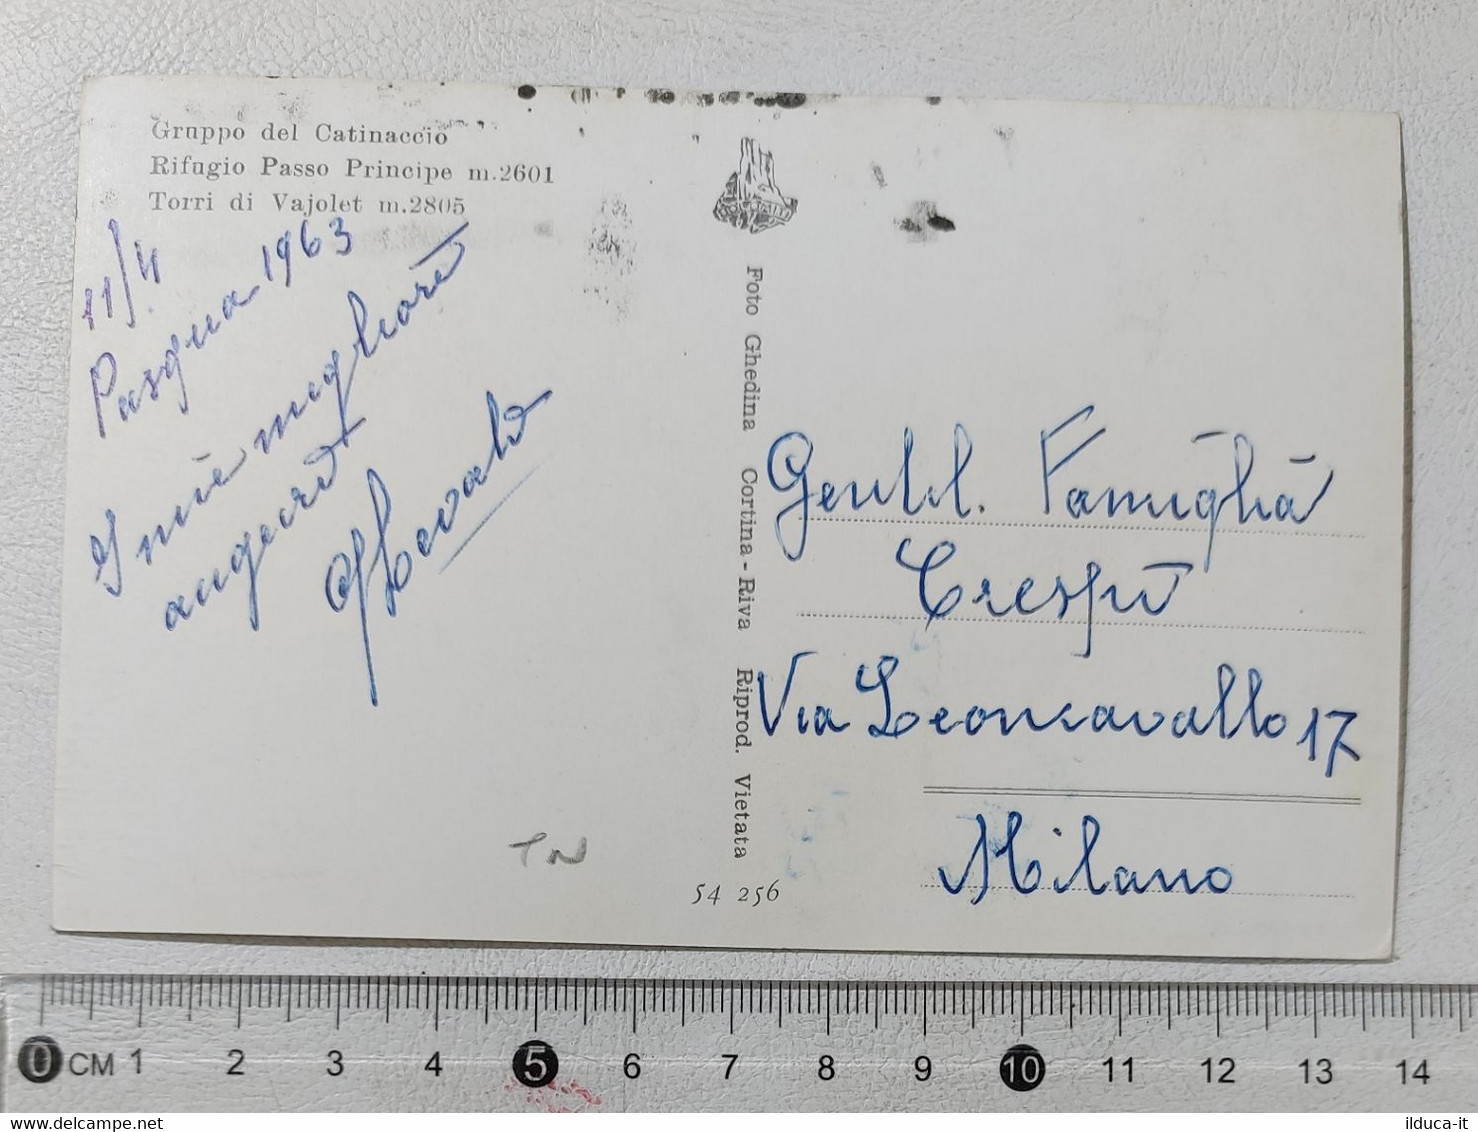 Gruppo del Catinaccio
Rifugio Passo Principe m.2601
Torri di Vajolet m.2805
11/4
Pasqua 1963
I miei migliori
auguri
Foto Ghedina Cortina - Riva Riprod. Vietata
54 256
Gentil. Famiglia
Crespi
Via Leoncavallo 17
Milano
TN
0 CM 1 2 3 4 5 6 7 8 9 10 11 12 13 14
delcampe.net
ilduca-it